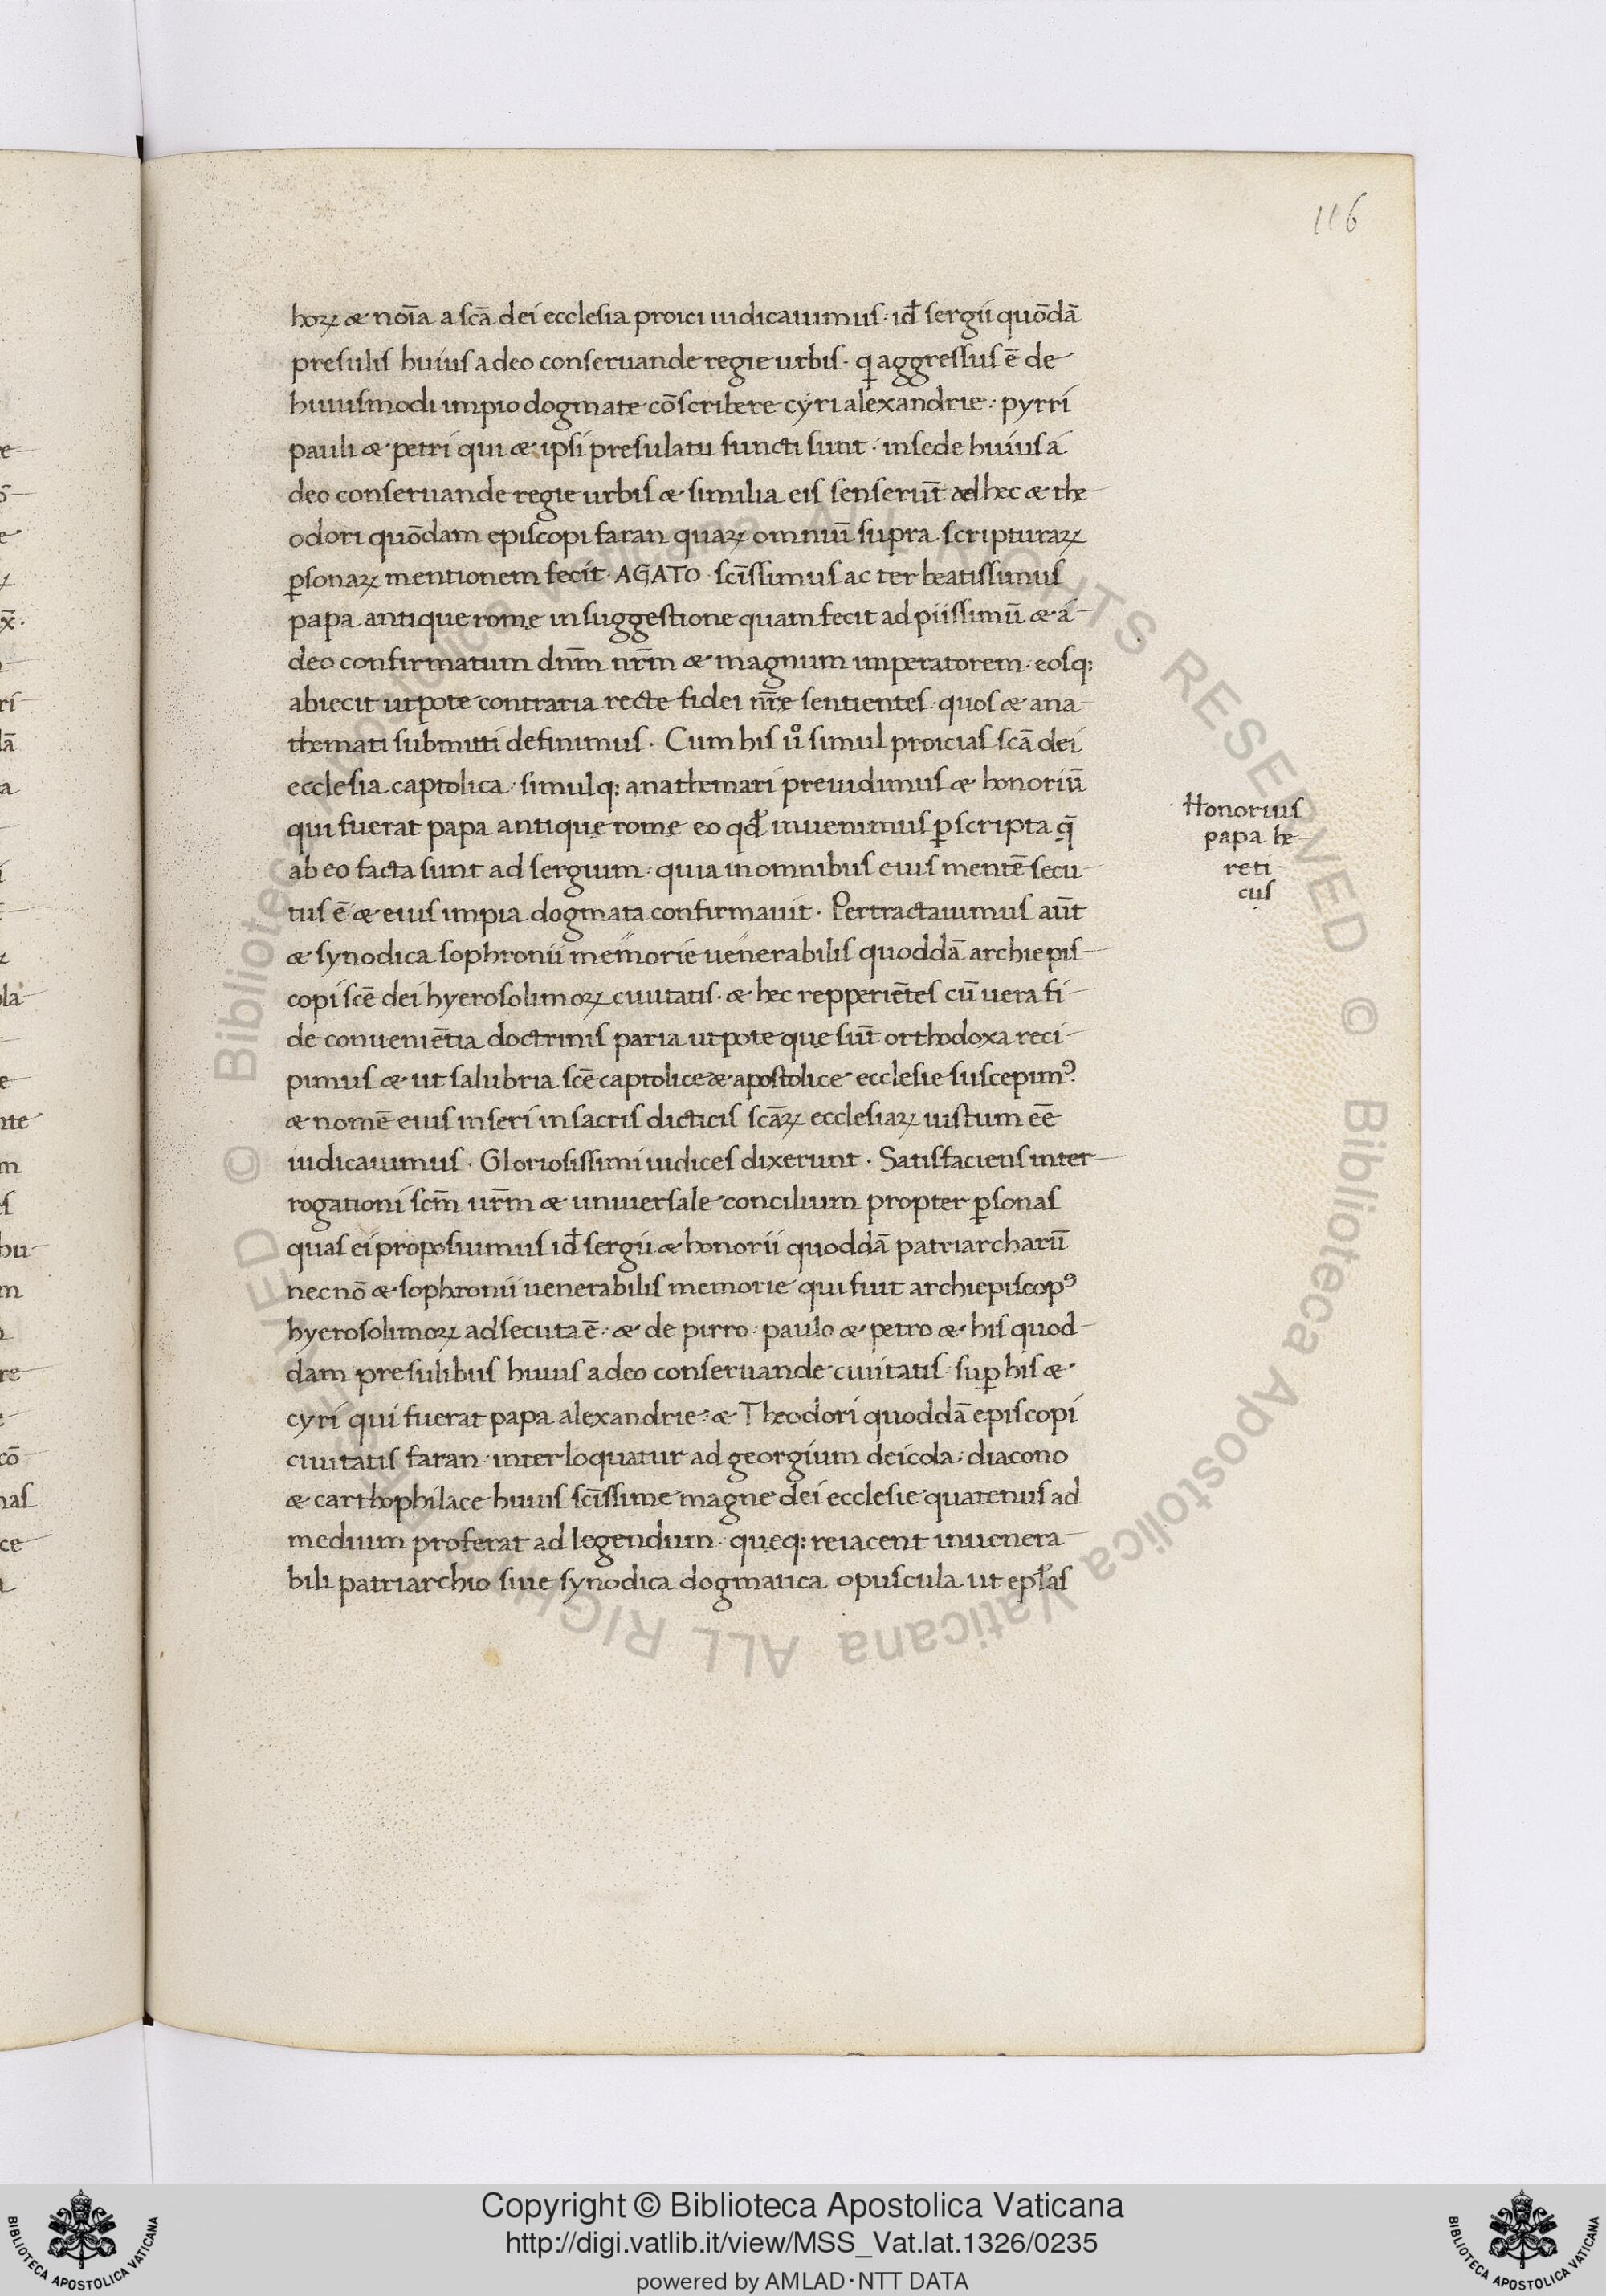 116
horꝝ & no̅ı̅a a sc̅a̅ dei ecclesia proici iudicauimus · id̅ sergii quo̅da̅
presulis huius a deo conseruande regie urbis · q aggressus e̅ de
huiusmodi impio dogmate co̅scribere cyri alexandrie · pyrri
pauli & petri qui & ipsi presulatu functi sunt · in sede huius a
deo conseruande regie urbis & similia eis senseru̅t ad hec & the
odori quo̅dam episcopi faran quaꝝ omniu̅ supra scripturaꝝ
ꝑsonaꝝ mentionem fecit · AGATO · sci̅ssimus ac ter beatissimus
papa antique romę in suggestione quam fecit ad piissimu̅ & a
deo confirmatum dn̅m nr̅m & magnum imperatorem · eosq:
abiecit utpote contraria recte fidei nr̅e sentientes · quos & ana
themati submitti definimus · Cum his uº simul proici a s sca̅ dei
ecclesia captolica · simulq: anathemari preuidimus & honoriu̅
qui fuerat papa antiquę romę eo qd̅ inuenimus ꝑ scripta q̅
ab eo facta sunt ad sergium · quia in omnibus eius mente̅ secu
tus e̅ & eius impia dogmata confirmauit · Pertractauimus au̅t
& synodica sophronii memorie uenerabilis quodda̅ archiepis
copi sce̅ dei hyerosolimoꝝ ciuitatis · & hec repperie̅tes cu̅ uera fi
de conuenie̅tia doctrinis paria utpote quę su̅t orthodoxa reci
pimus & ut salubria sce̅ captolice & apostolice ecclesie suscepimꝰ
& nome̅ eius inseri in sacris dicticis sca̅ꝝ ecclesiaꝝ iustum ee̅
iudicauimus · Gloriosissimi iudices dixerunt · Satisfaciens inter
rogationi scm̅ ur̅m & uniuersale concilium propter ꝑsonas
quas ei proposuimus id̅ sergii & honorii quodda̅ patriarcharu̅
nec no̅ & sophronii uenerabilis memorie qui fuit archiepiscopꝰ
hyerosolimoꝝ adsecuta e̅ · & de pirro · paulo & petro & his quod
dam presulibus huius a deo conseruande ciuitatis · suꝑ his &
cyri qui fuerat papa alexandrie · & Theodori quodda̅ episcopi
ciuitatis faran · interloquatur ad georgium deicola · diacono
& carthophilace huius sci̅ssime magne dei ecclesie quatenus ad
medium proferat ad legendum · queq: reiacent in uenera
bili patriarchio siue synodica dogmatica opuscula ut epl̅as
Honorius
papa he
reti
cus
© Biblioteca Apostolica Vaticana ALL RIGHTS RESERVED
Copyright © Biblioteca Apostolica Vaticana
http://digi.vatlib.it/view/MSS_Vat.lat.1326/0235
powered by AMLAD·NTT DATA
BIBLIOTECA APOSTOLICA VATICANA
BIBLIOTECA APOSTOLICA VATICANA